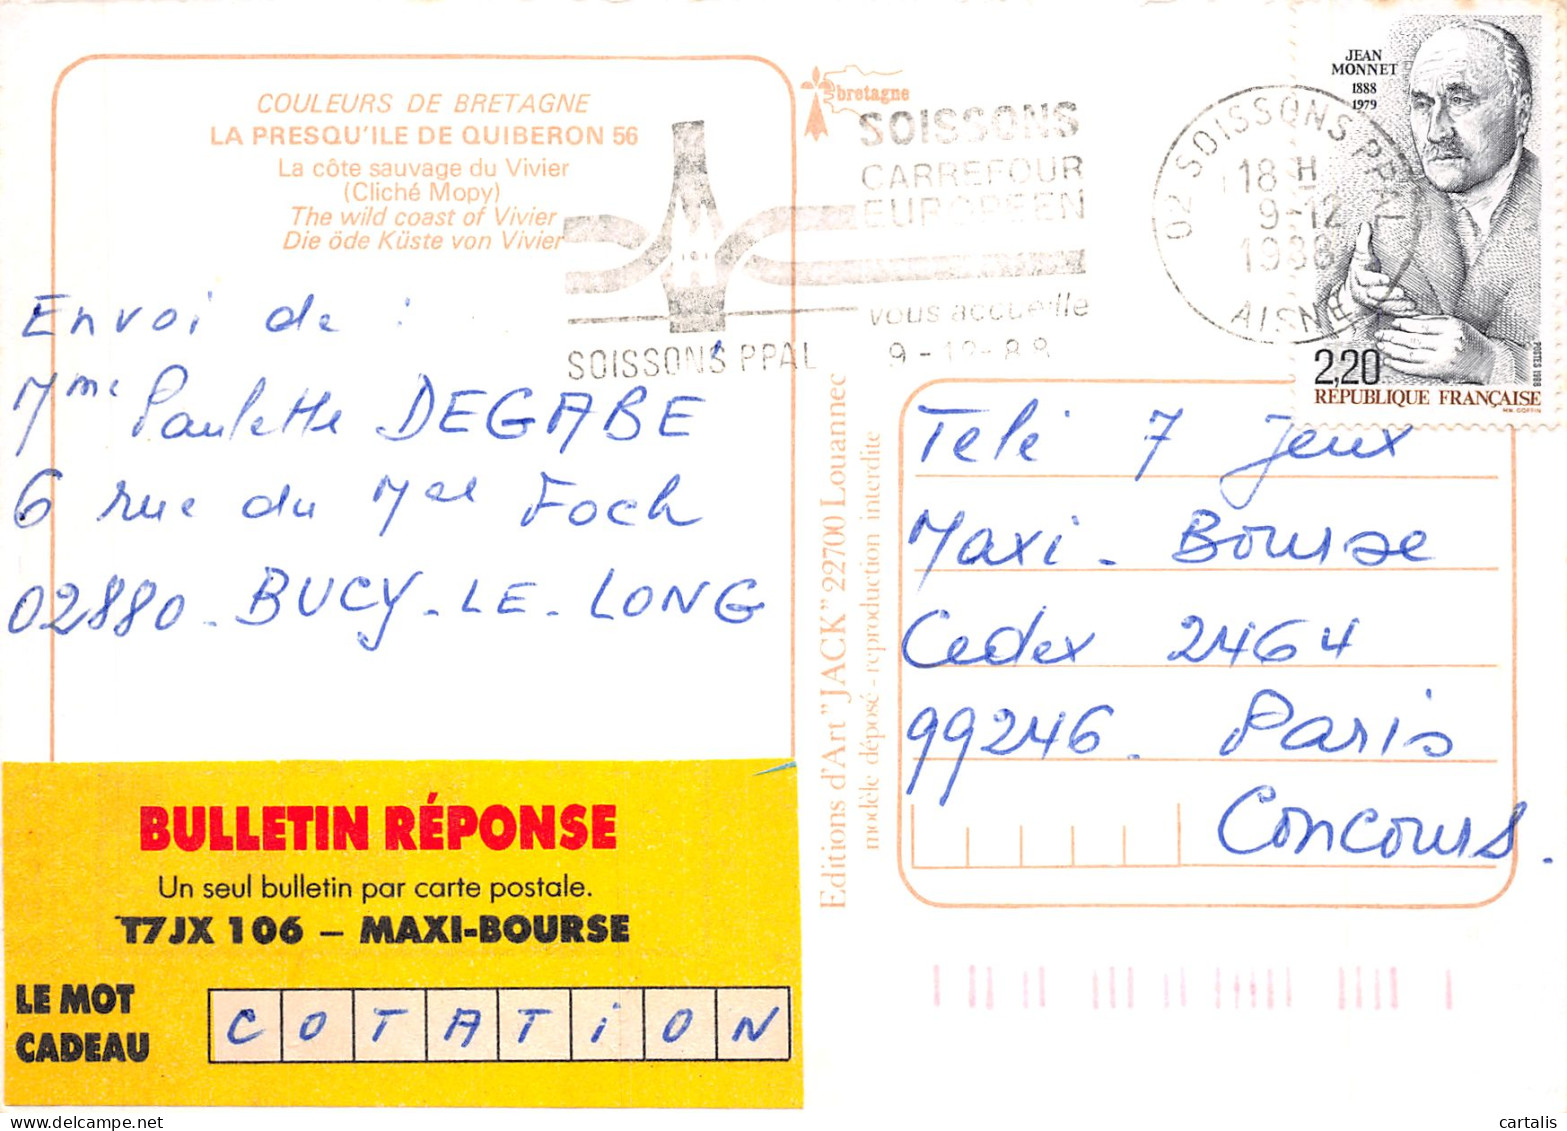 COULEURS DE BRETAGNE
LA PRESQU'ILE DE QUIBERON 56
La côte sauvage du Vivier
(Cliché Mopy)
The wild coast of Vivier
Die öde Küste von Vivier
Envoi de :
Mme Paulette DEGABE
6 rue du Mal Foch
02880 - BUCY-LE-LONG
BULLETIN RÉPONSE
Un seul bulletin par carte postale.
T7JX 106 – MAXI-BOURSE
LE MOT
CADEAU
COTATION
bretagne
SOISSONS
CARREFOUR
EUROPÉEN
vous accueille
SOISSONS PPAL 9-12-88
Editions d'Art "JACK" 22700 Louannec
modèle déposé - reproduction interdite
02 SOISSONS PPAL
18 H
9-12
1988
AISNE
JEAN
MONNET
1888
1979
2,20
POSTES 1988
RÉPUBLIQUE FRANÇAISE
Télé 7 Jeux
Maxi - Bourse
Cedex 2464
99246 - Paris
Concours.
cartalis